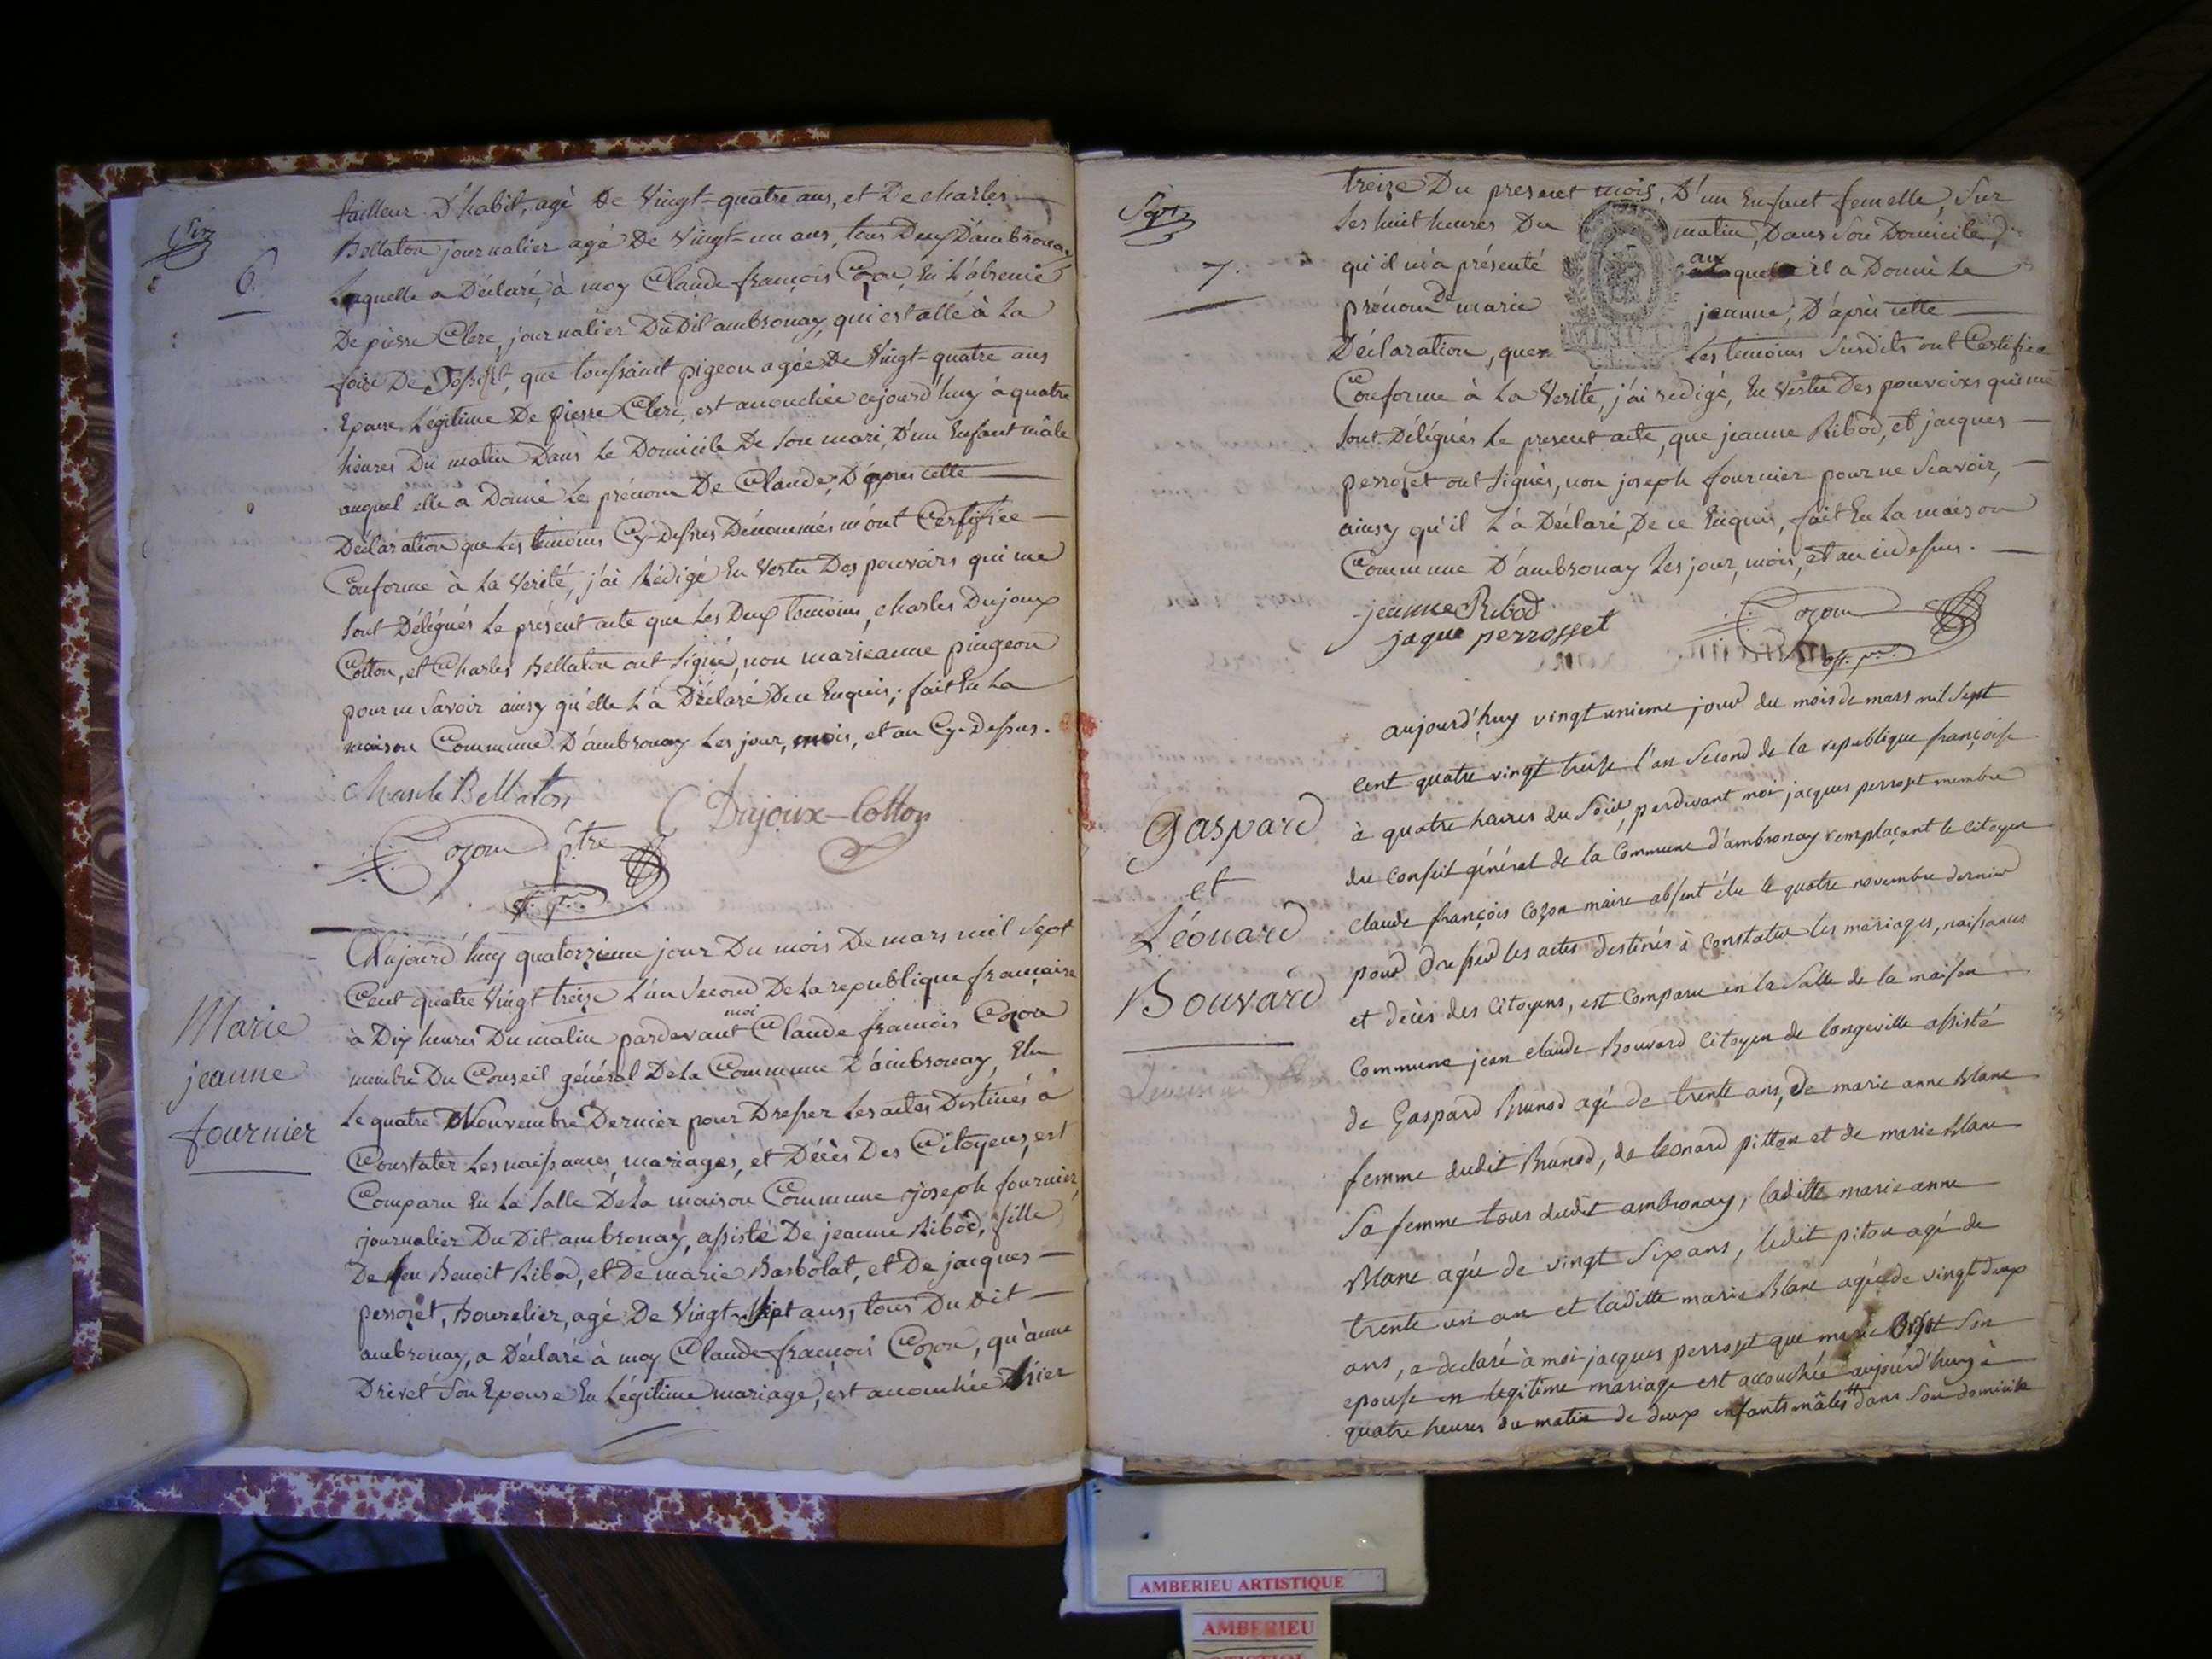 Six
6.
tailleur D'habit, agé De Vingt-quatre ans, et De charles
Bellaton journalier agé De Vingt-un ans, tous Deux D'ambronay
Laquelle a Déclaré, à moy Claude françois Cozon, En L'absence
De pierre Clerc, journalier DuDit ambronay, qui est allé à La
foire De, que toussainit pigeon agée De Vingt-quatre ans
Epouse Légitime De pierre Clerc, est accouchée cejourd'huy à quatre
heures Du matin Dans Le Domicile De Son mari, D'un Enfant mâle
auquel elle a Donné Le prénom De Claude, D'apres cette
Déclaration que Les témoins Cy-Dessus Dénommés m'ont Certifiée
Conforme à La Verité, j'ai Rédigé En Vertu Des pouvoirs qui me
Sont Délégués Le présent acte que Les Deux témoins, charles Dujoux
Cotton, et Charles Bellaton ont Signé, non marieanne pingeon
pour ne Savoir ainsy qu'elle L'a Déclaré De ce Enquis; fait En La
maison Commune D'ambronay Les jour, mois, et an Cy-Dessus.
Charle Bellaton
Dujoux-Cotton
Cozon p.tre
off. p.
Marie
jeanne
fournier
Aujourd'huy quatorzieme jour Du mois De mars mil Sept
Cent quatre Vingt treize L'an Second De La republique francaise
à Dix heures Du matin pardevant moi Claude francois Cozon
membre Du Conseil général De La Commune D'ambronay, Elu
Le quatre Nouvembre Dernier pour Dresser Les actes Destinés à
Constater Les naissances, mariages, et Décès Des Citoyens, est
Comparu En La Salle De La maison Commune joseph fournier,
journalier Du Dit ambronay, assisté De jeanne Ribod, fille
De feu Benoit Ribod, et De marie Barbolat, et De jacques
perrozet, Bourelier, agé De Vingt-Sept ans, tous Du Dit
ambronay, a Déclaré à moy Claude françois Cozon, qu'anne
Drivet Son Epouse En Légitime mariage, est accouchée Hier
Sept
7.
treize Du present mois, D'un Enfant femelle, Sur
Les huit heures Du matin, Dans Son Domicile,
qu'il m'a présenté auquel il a Donné Le
prénom De marie jeanne; D'après cette
Déclaration, que Les témoins Susdits ont Certifiée
Conforme à La Verité, j'ai redigé, En Vertu Des pouvoirs qui me
Sont Délégués Le present acte, que jeanne Ribod, et jacques
perrozet ont Signés, non joseph fournier pour ne Scavoir,
ainsy qu'il L'a Déclaré, De ce Enquis, fait En La maison
Commune D'ambronay Les jour, mois, et an cidessus.
jeanne Ribod
jaque perrosset
Cozon
off. p.
Gaspard
et
Léonard
Bouvard
aujourd'huy vingt unieme jour du mois de mars mil Sept
cent quatre vingt treize l'an Second de la republique françoise
à quatre heures du Soir, pardevant moi jacques perrozet membre
du conseil général de la Commune d'ambronay remplaçant le citoyen
claude françois Cozon maire absent élu le quatre novembre dernier
pour dresser les actes destinés à constater les mariages, naissances
et décès des citoyens, est Comparu en la Salle de la maison
Commune jean claude Bouvard Citoyen de longeville assisté
de Gaspard Brunod agé de trente ans, de marie anne blanc
femme dudit Brunod, de leonard pitton et de marie blanc
Sa femme tous dudit ambronay, laditte marie anne
Blanc agée de vingt Six ans, ledit piton agé de
trente un an et laditte marie blanc agée de vingt deux
ans, a declaré à moi jacques perrozet que marie Son
epouse en legitime mariage est accouchée aujourd'huy à
quatre heures du matin de deux enfants mâles dans Son domicile
AMBERIEU ARTISTIQUE
AMBERIEU
ARTISTIQUE